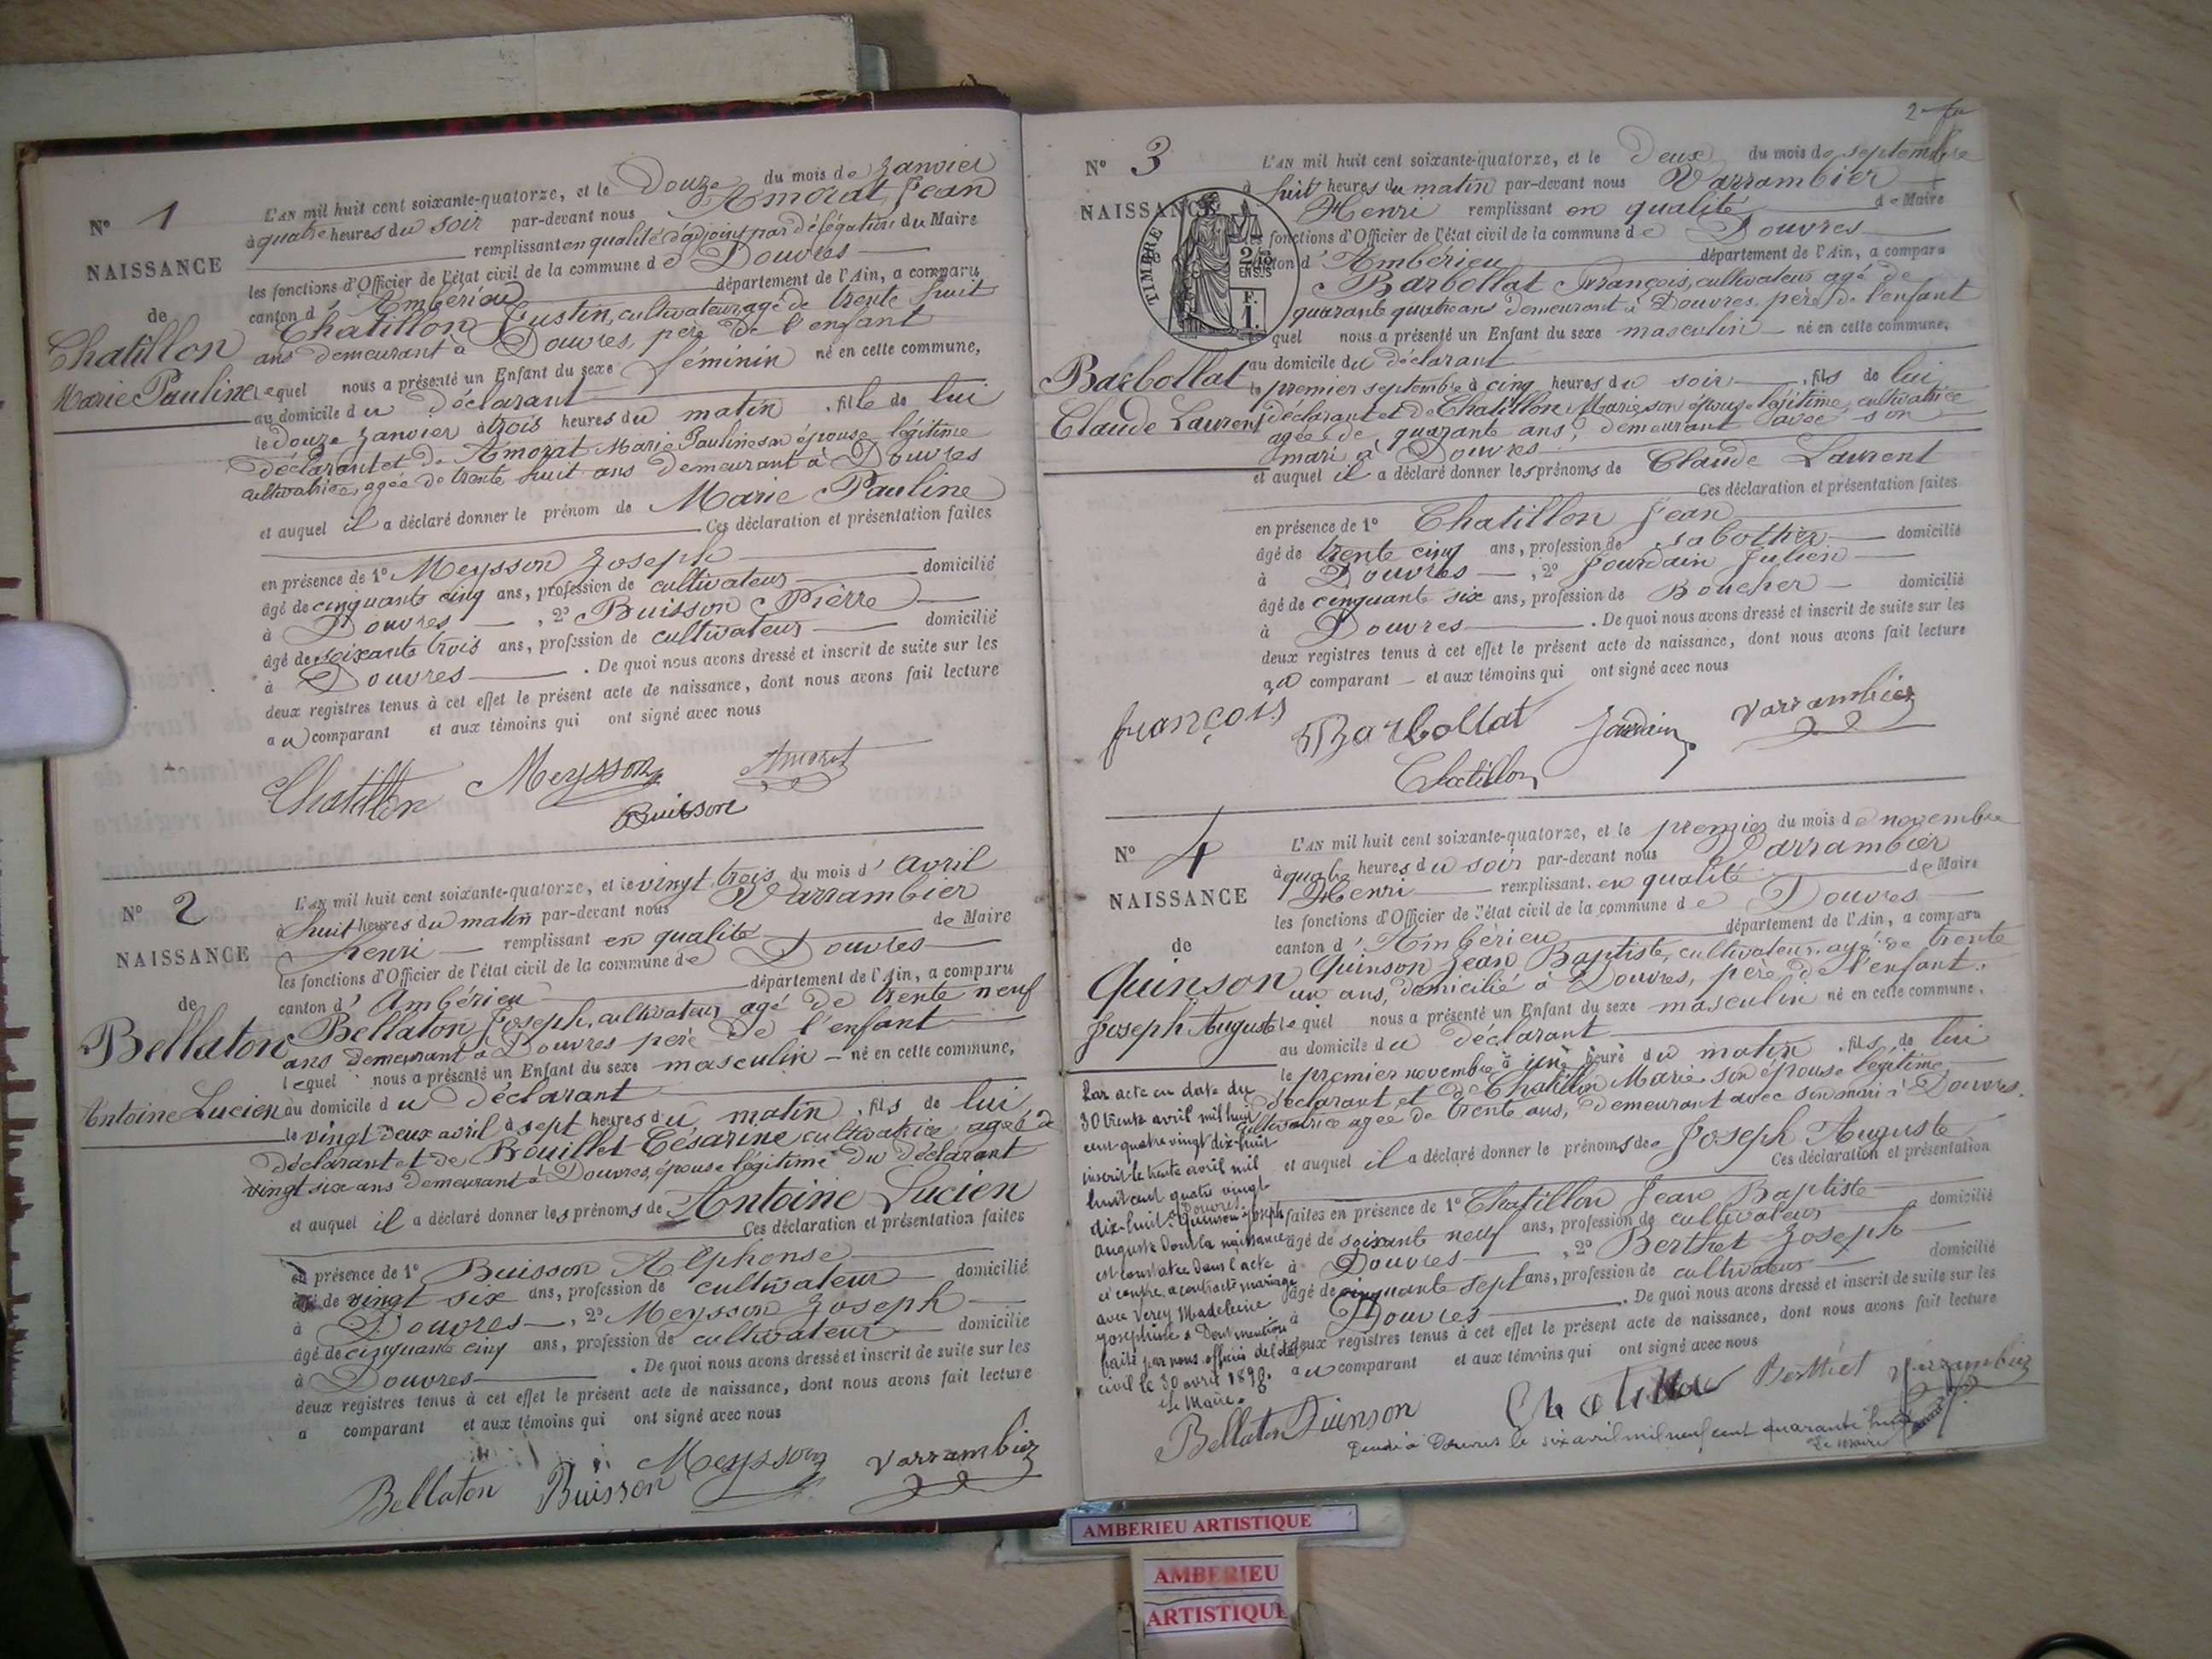 N° 1
NAISSANCE
de
Chatillon
Marie Pauline
L'AN mil huit cent soixante-quatorze, et le Douze du mois de Janvier
à quatre heures du soir par-devant nous Amorat Jean
remplissant en qualité d'adjoint par délégation du Maire
les fonctions d'Officier de l'état civil de la commune de Douvres
canton d'Ambérieu département de l'Ain, a comparu
Chatillon Justin, cultivateur agé de trente huit
ans demeurant à Douvres, père de l'enfant
lequel nous a présenté un Enfant du sexe féminin né en cette commune,
au domicile du déclarant
le douze Janvier à trois heures du matin, fille de lui
déclarant et de Amorat Marie Pauline son épouse légitime
cultivatrice, agée de trente huit ans demeurant à Douvres
et auquel il a déclaré donner le prénom de Marie Pauline
Ces déclaration et présentation faites
en présence de 1° Meysson Joseph
âgé de cinquante cinq ans, profession de cultivateur domicilié
à Douvres, 2° Buisson Pierre
âgé de soixante trois ans, profession de cultivateur domicilié
à Douvres. De quoi nous avons dressé et inscrit de suite sur les
deux registres tenus à cet effet le présent acte de naissance, dont nous avons fait lecture
au comparant et aux témoins qui ont signé avec nous
Chatillon Meysson Amorat
Buisson
N° 2
NAISSANCE
de
Bellaton
Antoine Lucien
L'AN mil huit cent soixante-quatorze, et le vingt trois du mois d'Avril
à huit heures du matin par-devant nous Varrambier
henri remplissant en qualité de Maire
les fonctions d'Officier de l'état civil de la commune de Douvres
canton d'Ambérieu département de l'Ain, a comparu
Bellaton Joseph, cultivateur agé de trente neuf
ans demeurant à Douvres père de l'enfant
lequel nous a présenté un Enfant du sexe masculin né en cette commune,
au domicile du déclarant
le vingt deux avril à sept heures du matin, fils de lui
déclarant et de Bouillet Césarine cultivatrice agée de
vingt six ans demeurant à Douvres, épouse légitime du déclarant
et auquel il a déclaré donner les prénoms de Antoine Lucien
Ces déclaration et présentation faites
en présence de 1° Buisson Alphonse
âgé de vingt six ans, profession de cultivateur domicilié
à Douvres, 2° Meysson Joseph
âgé de cinquante cinq ans, profession de cultivateur domicilié
à Douvres. De quoi nous avons dressé et inscrit de suite sur les
deux registres tenus à cet effet le présent acte de naissance, dont nous avons fait lecture
a comparant et aux témoins qui ont signé avec nous
Bellaton Buisson Meysson Varrambier
N° 3
NAISSANCE
TIMBRE
F.
1.
Barbollat
Claude Laurent
L'AN mil huit cent soixante-quatorze, et le Deux du mois de septembre
à huit heures du matin par-devant nous Varrambier
Henri remplissant en qualité de Maire
les fonctions d'Officier de l'état civil de la commune de Douvres
canton d'Ambérieu département de l'Ain, a comparu
Barbollat François, cultivateur agé de
quarante quatre ans demeurant à Douvres, père de l'enfant
lequel nous a présenté un Enfant du sexe masculin né en cette commune,
au domicile du déclarant
le premier septembre à cinq heures du soir, fils de lui
déclarant et de Chatillon Marie son épouse légitime, cultivatrice
agée de quarante ans, demeurant avec son
mari à Douvres
et auquel il a déclaré donner les prénoms de Claude Laurent
Ces déclaration et présentation faites
en présence de 1° Chatillon Jean
âgé de trente cinq ans, profession de sabotier domicilié
à Douvres, 2° Jourdain Julien
âgé de cinquante six ans, profession de Boucher domicilié
à Douvres. De quoi nous avons dressé et inscrit de suite sur les
deux registres tenus à cet effet le présent acte de naissance, dont nous avons fait lecture
au comparant et aux témoins qui ont signé avec nous
françois Barbollat Jourdain Varrambier
Chatillon
N° 4
NAISSANCE
de
Quinson
Joseph Auguste
L'AN mil huit cent soixante-quatorze, et le premier du mois de novembre
à quatre heures du soir par-devant nous Varrambier
Henri remplissant en qualité de Maire
les fonctions d'Officier de l'état civil de la commune de Douvres
canton d'Ambérieu département de l'Ain, a comparu
Quinson Jean Baptiste, cultivateur, agé de trente
un ans, domicilié à Douvres, père de l'enfant.
lequel nous a présenté un Enfant du sexe masculin né en cette commune,
au domicile du déclarant
le premier novembre à une heure du matin, fils de lui
déclarant et de Chatillon Marie, son épouse légitime
cultivatrice agée de trente ans, demeurant avec son mari à Douvres.
et auquel il a déclaré donner les prénoms de Joseph Auguste
Ces déclaration et présentation
faites en présence de 1° Chatillon Jean Baptiste
âgé de soixante neuf ans, profession de cultivateur domicilié
à Douvres, 2° Berthet Joseph
âgé de cinquante sept ans, profession de cultivateur domicilié
à Douvres. De quoi nous avons dressé et inscrit de suite sur les
deux registres tenus à cet effet le présent acte de naissance, dont nous avons fait lecture
au comparant et aux témoins qui ont signé avec nous
Par acte en date du
30 trente avril mil huit
cent quatre vingt dix-huit
inscrit le trente avril mil
huit cent quatre vingt
dix-huit à Douvres Quinson Joseph
Auguste dont la naissance
est constatée dans l'acte
ci contre a contracté mariage
avec Verey Madeleine
Joséphine. Dont mention
faite par nous officier de l'état
civil le 30 avril 1898.
Le Maire.
Bellaton Quinson Chatillon Berthet Varrambier
Décédé à Douvres le six avril mil neuf cent quarante huit
Le maire
AMBERIEU ARTISTIQUE
AMBERIEU
ARTISTIQUE